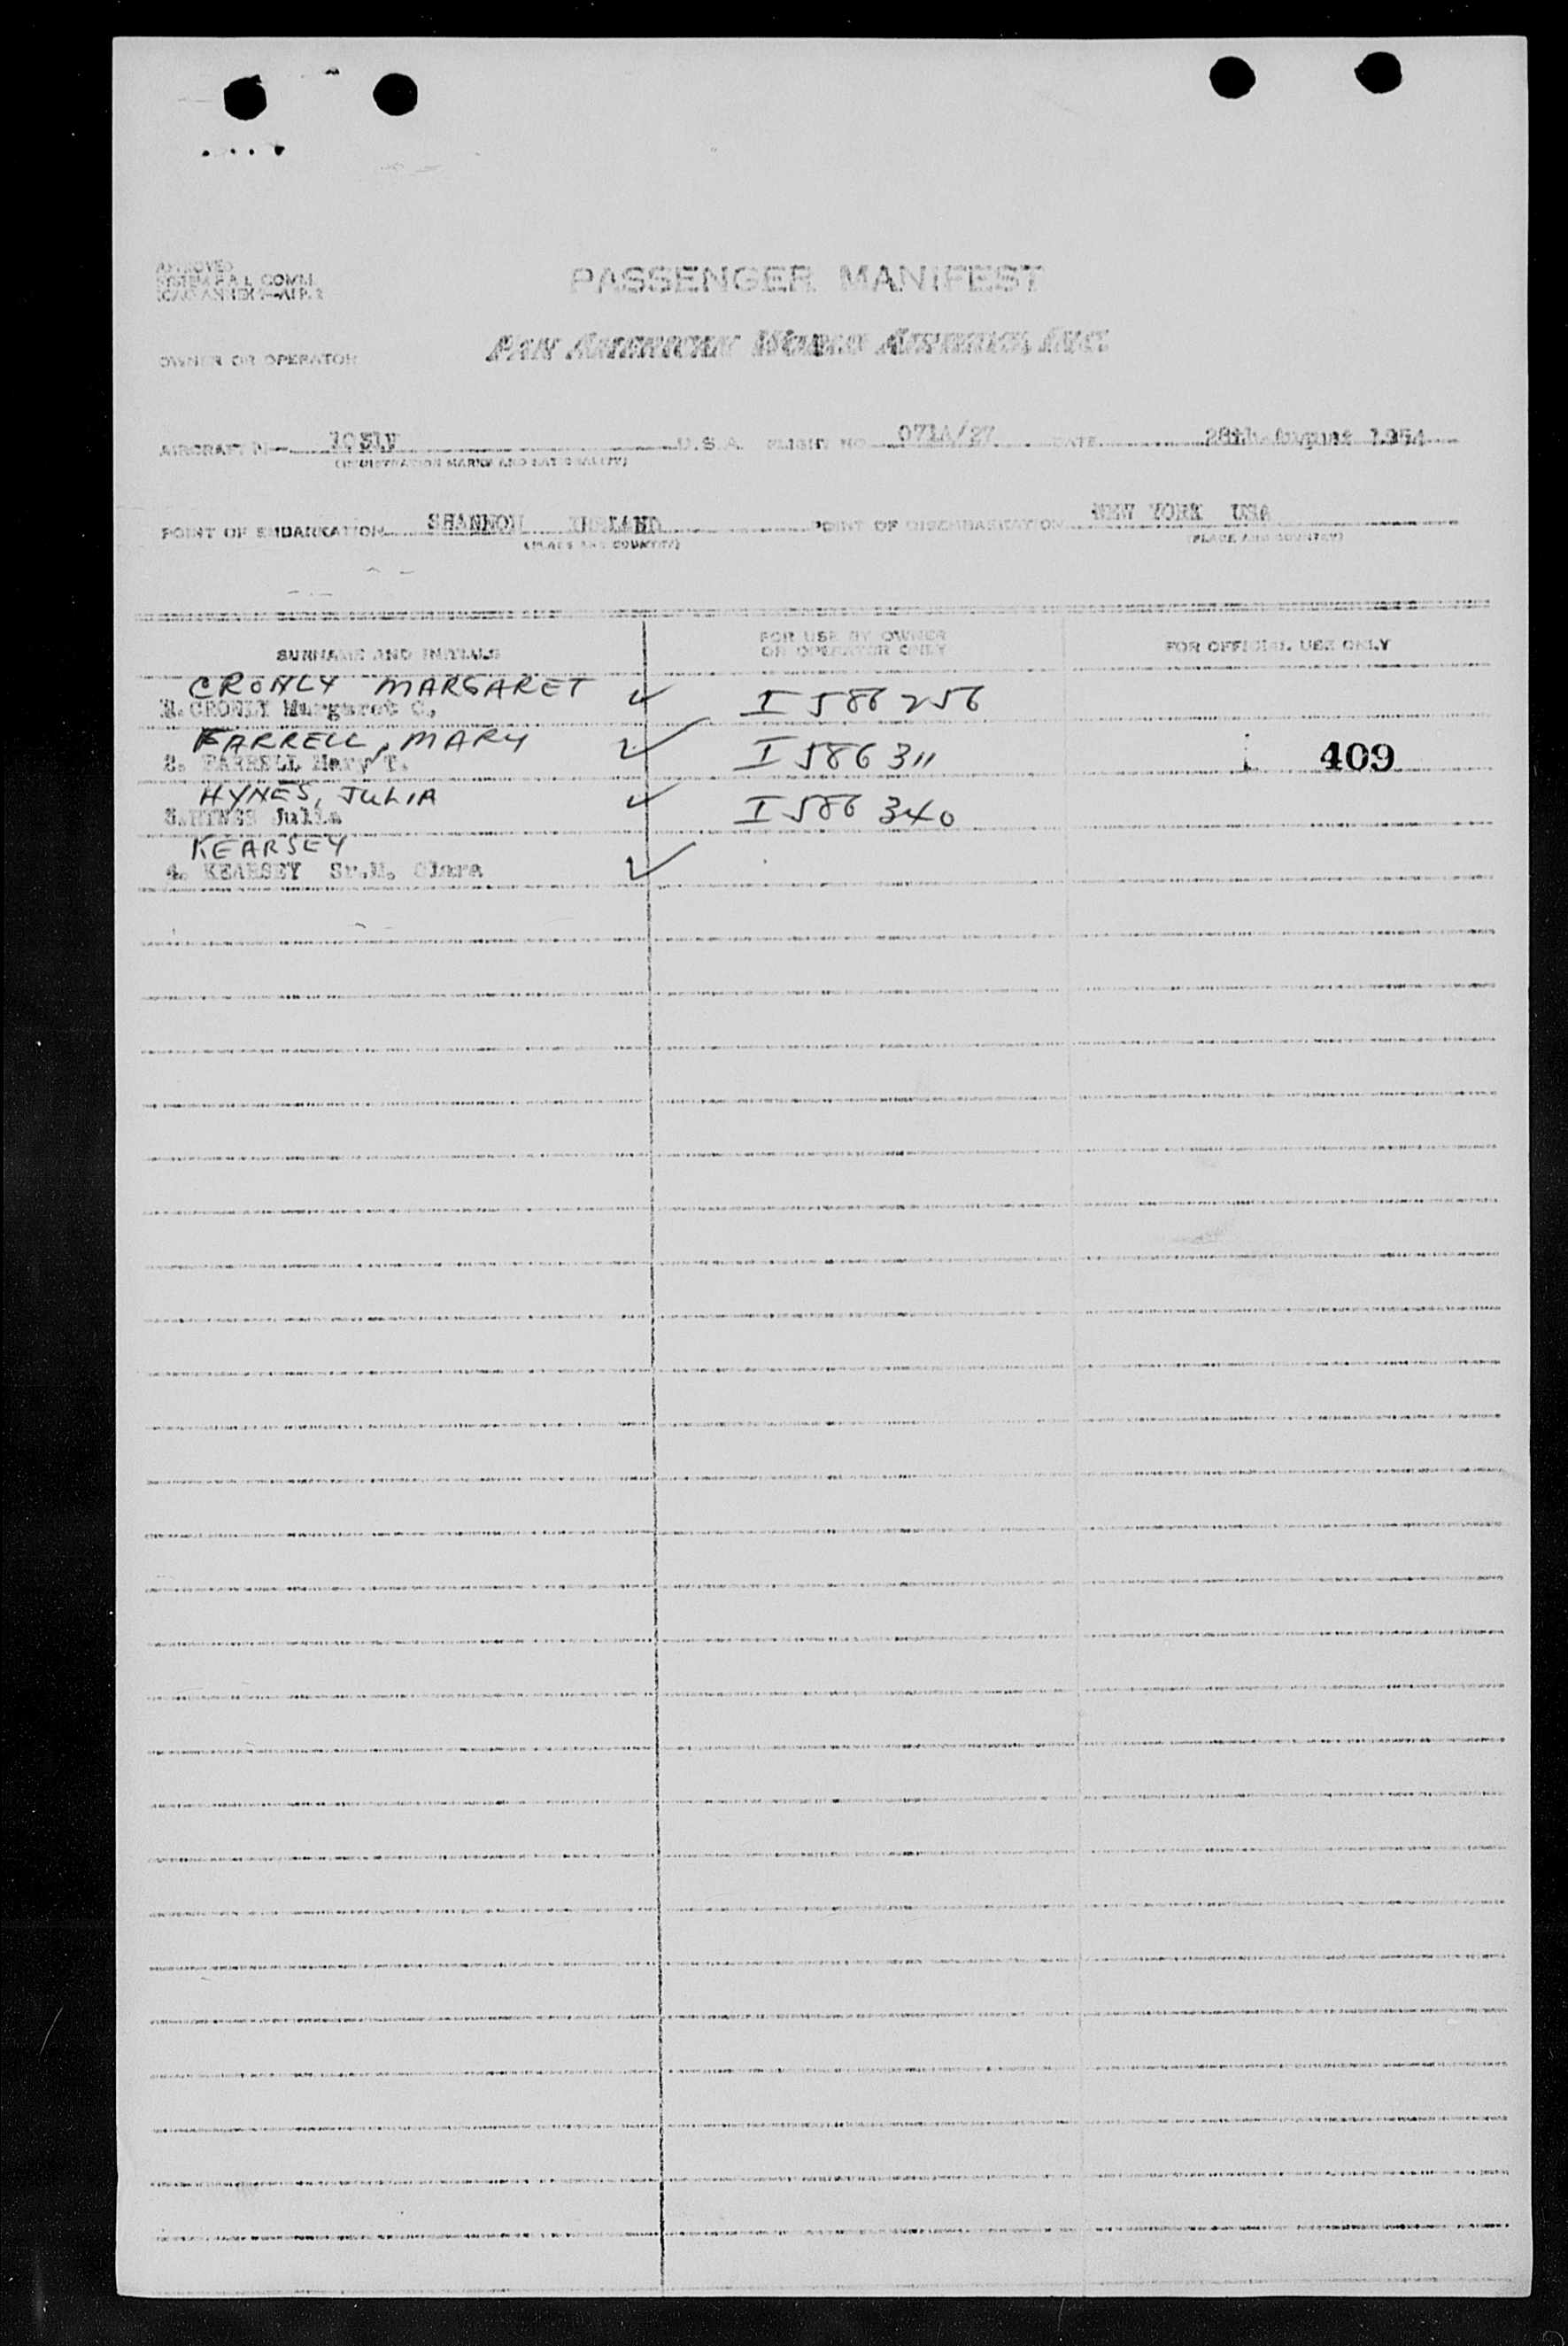 APPROVED
PASSENGER MANIFEST
OWNER OR OPERATOR
PAN AMERICAN WORLD AIRWAYS, INC.
AIRCRAFT U.S.A. FLIGHT NO 071A/27 DATE 28th August 1954
(REGISTRATION MARKS AND NATIONALITY)
POINT OF EMBARKATION SHANNON IRELAND POINT OF DISEMBARKATION NEW YORK USA
(PLACE AND COUNTRY) (PLACE AND COUNTRY)
SURNAME AND INITIALS FOR USE BY OWNER OR OPERATOR ONLY FOR OFFICIAL USE ONLY
CRONLY MARGARET ✓ I 586256
CRONLY Margaret C.
FARRELL, MARY ✓ I 586311 409
2. FARRELL Mary T.
HYNES, JULIA ✓ I 586340
3. HYNES Julia
KEARSEY
4. KEARSEY Sr.M. Clara ✓